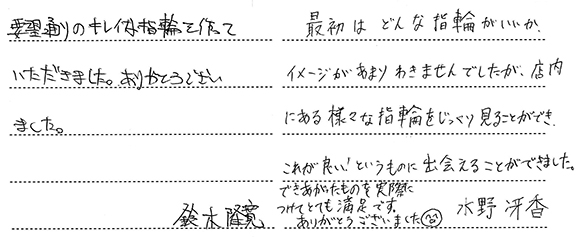 要望通りのキレイな指輪を作って
いただきました。ありがとうござい
ました。
鈴木隆寛
最初はどんな指輪がいいか、
イメージがあまりわきませんでしたが、店内
にある様々な指輪をじっくり見ることができ、
これが良い!というものに出会えることができました。
できあがたものを実際に
つけてとても満足です。
ありがとうございました
水野冴香